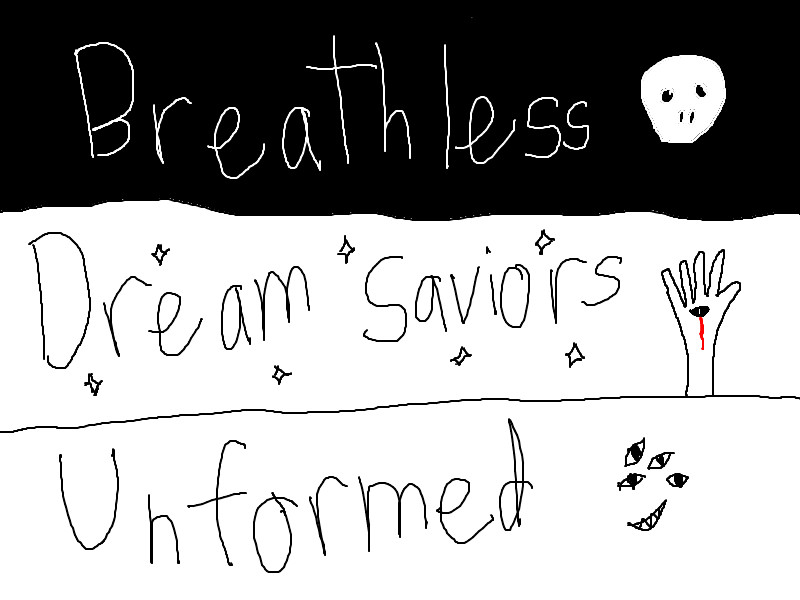 Breathless
Dream Saviors
Unformed